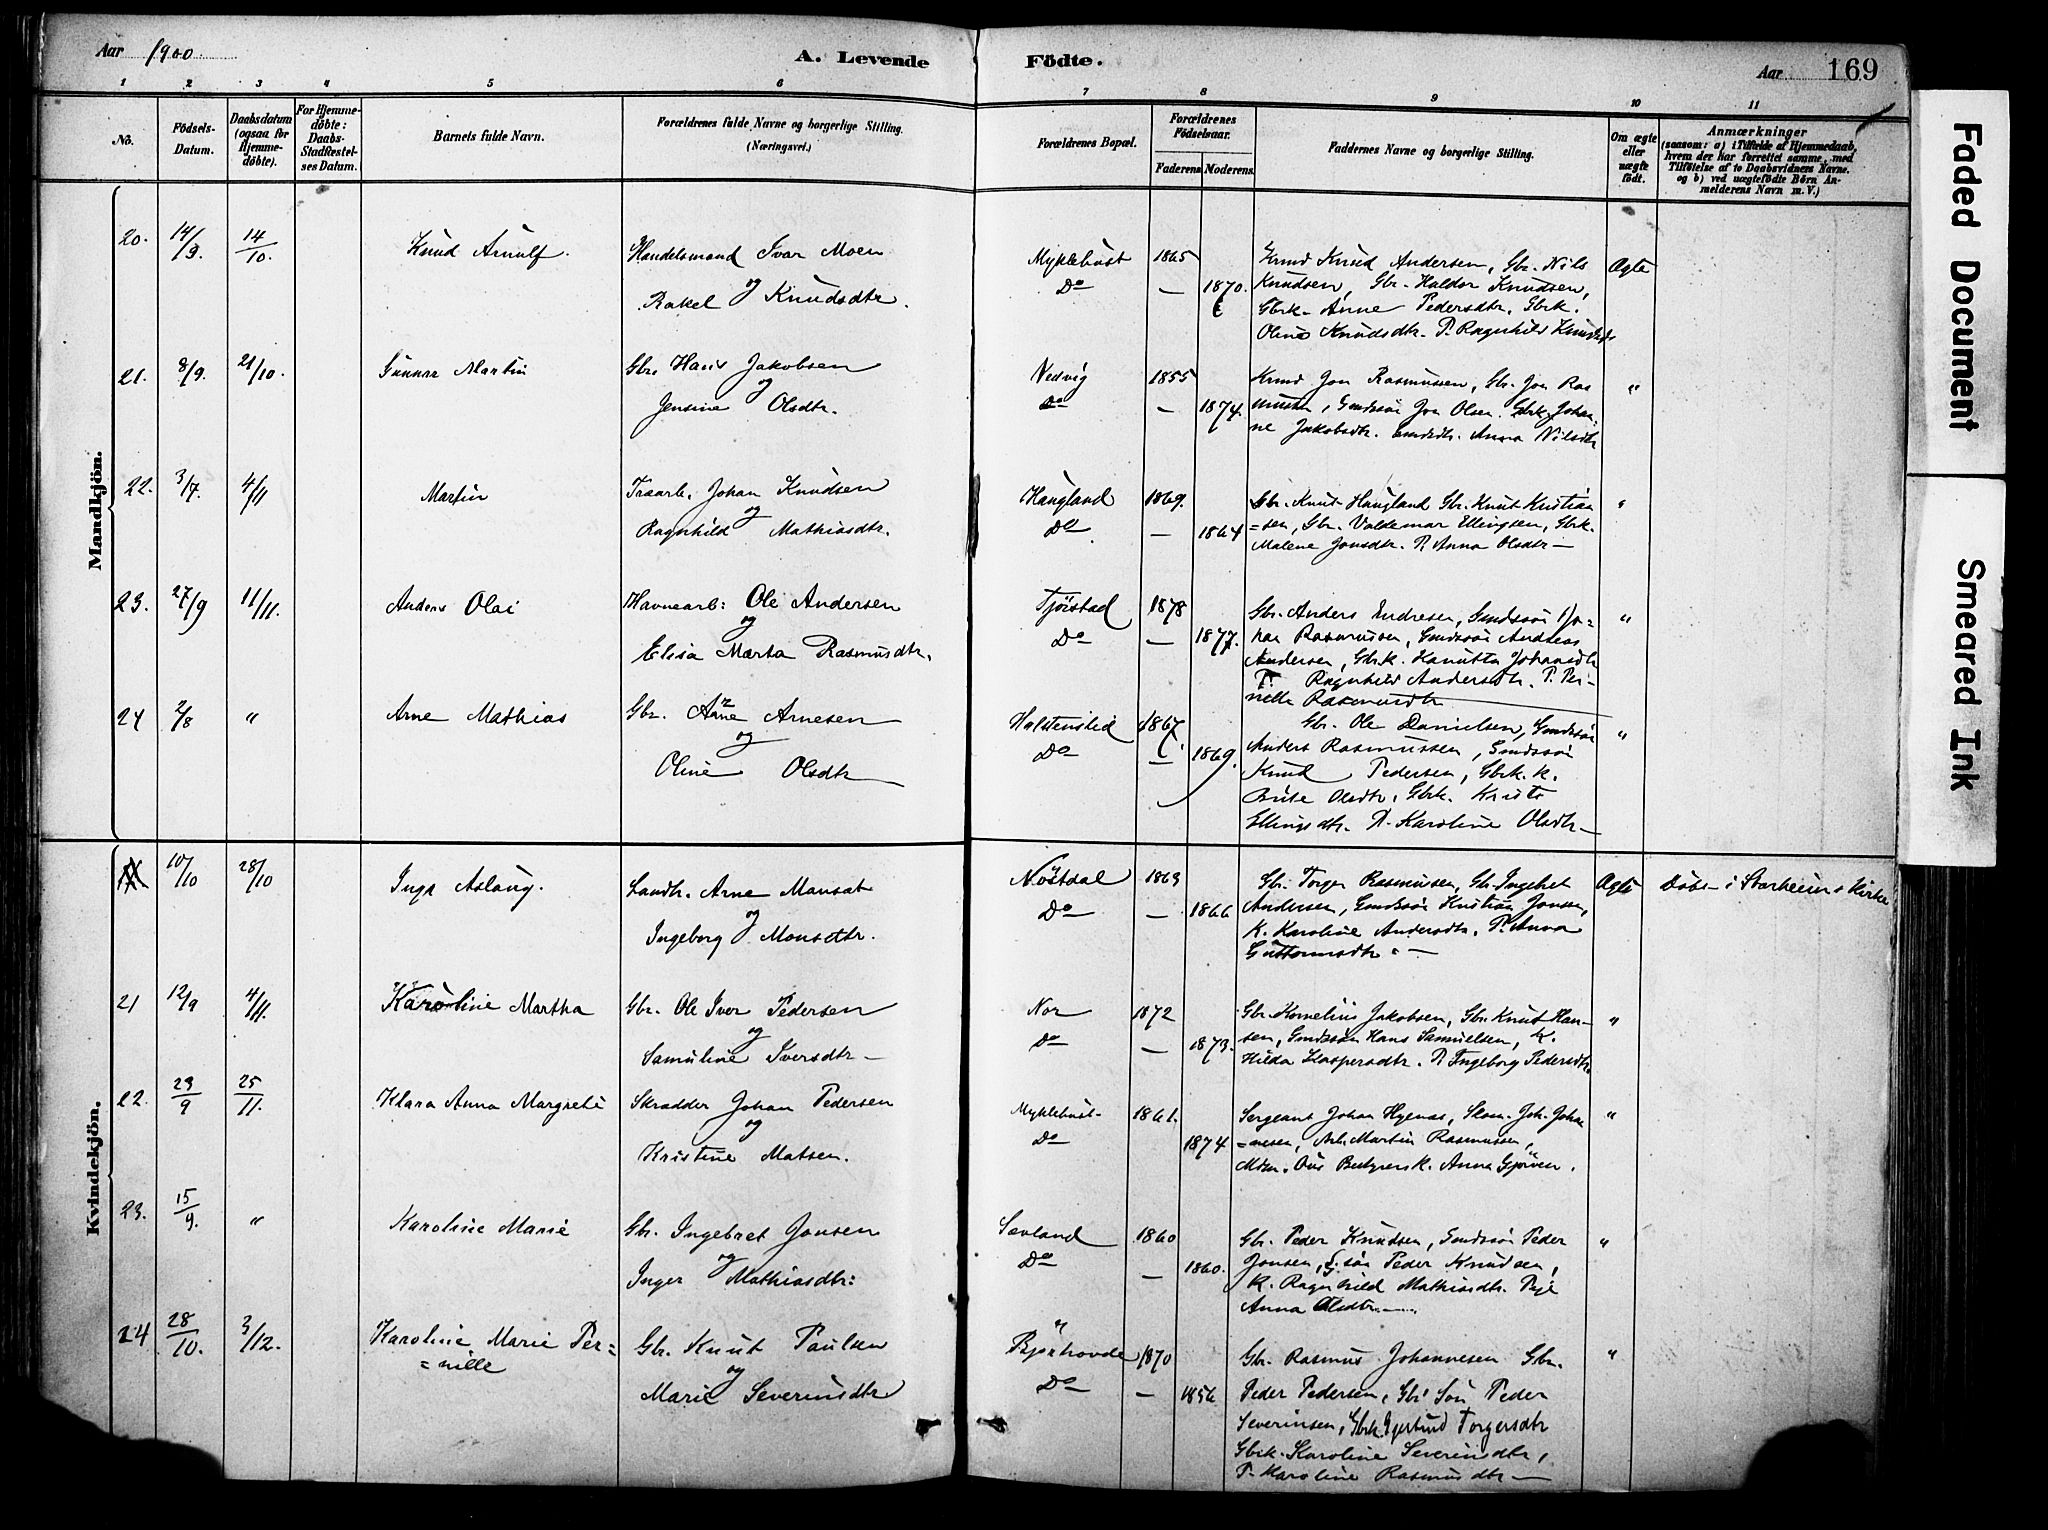 Aar 1900
A. Levende
Födte.
Aar 169
1 2 3 4 5 6 7 8 9 10 11
No.
Födsels-
Datum.
Daabsdatum
(ogsaa for
Hjemme-
döbte).
For Hjemme-
döbte:
Daabs-
Stadfæstel-
ses Datum.
Barnets fulde Navn.
Forældrenes fulde Navne og borgerlige Stilling.
(Næringsvei.)
Forældrenes Bopæl.
Forældrenes
Födselsaar.
Faderens Moderens
Faddernes Navne og borgerlige Stilling.
Om ægte
eller
uægte
födt.
Anmærkninger
(saasom: a) i Tilfælde af Hjemmedaab,
hvem der har forrettet samme, med
Tilföielse af to Daabsvidners Navne.
og b) ved uægtefödte Börn An-
melderens Navn m. V.)
Mandkjön.
20. 14/9. 14/10. Knud Arnulf Handelsmand Ivar Moen
og
Rakel Knudsdtr.
Myklebust 1865
Do — 1870.
Knud Andersen, Gbr. Nils
Knudsen, Gbr. Haldor Knudsen,
Gbrk. Anne Pedersdtr. Gbrk.
Oline Knudsdtr. P. Ragnhild Knudsdtr
Ægte
21. 8/9. 21/10. Gunnar Martin Gbr. Hans Jakobsen
og
Jensine Olsdtr.
Nedvig 1855
Do — 1874.
Jon Rasmussen, Gbr. Jon Ras
mussen, Gmdssön Jon Olsen. Gbrk. Johan-
ne Jakobsdtr. Gmdsdtr. Anna Nilsdtr
"
22. 3/7. 4/11 Martin Traarb. Johan Knudsen
og
Ragnhild Mathiasdtr.
Haugland 1869.
Do — 1864
Gbr. Knut Haugland Gbr. Knut Kristian
=sen, Gbr. Valdemar Ellingsen, Gbrk.
Malene Jonsdtr. P. Anna Olsdtr —
"
23. 27/9 11/11. Anders Olai Havnearb: Ole Andersen
og
Elisa Marta Rasmusdtr.
Tjöistad 1878
Do — 1877.
Gbr. Anders Endresen, Gmdssön Jo=
han Rasmussen, Gmdssön Andreas
Andersen, Gbrk. Hanutta Johansdtr
P. Ragnhild Andersdtr. P. Per-
nille Rasmusdtr
"
24 2/8 " Arne Mathias Gbr. Arne Arnesen
og
Oline Olsdtr
Halstensteid 1867
Do — 1869.
Gbr. Ole Danielsen, Gmdssön
Anders Rasmussen, Gmdssön
Knud Pedersen, Gbrk. k.
Brite Olsdtr, Gbrk. Kristi
Ellingsdtr. P. Karoline Olsdtr —
"
Kvindekjön.
10/10 28/10 Inga Aslaug. Landh. Arne Mansat
og
Ingeborg Monsdtr.
Nöstdal 1863
Do — 1866
Gbr. Torger Rasmusen, Gbr. Ingebret
Andersen, Gmdssön Kristian Jonsen,
K. Karoline Andersdtr. P. Anna
Guttormsdtr. —
Ægte Döbt i Starheims Kirke
21 12/9 4/11. Karoline Martha Gbr. Ole Iver Pedersen
og
Samuline Iversdtr —
Nor 1872
Do — 1873.
Gbr. Kornelius Jakobsen, Gbr. Knut Han-
sen, Gmdssön Hans Samuelsen, K.
Hilda Kaspersdtr. P. Ingeborg Pedersdtr.
"
22. 23/9 25/11. Klara Anna Margrete Skrædder Johan Pedersen
og
Kristine Matsen.
Myklebust 1861.
Do 1874
Sergeant Johan Hyenæs, Skom. Joh. Johan
=nesen, Arb. Martin Rasmussen,
Anna Gjörven.
"
23. 15/9. " Karoline Marie Gbr. Ingebret Jonsen
og
Inger Mathiasdtr:
Sævland 1860
Do — 1860.
Gbr. Peder Knudsen, Gmdssön Peder
Jonsen, G.sön Peder Knudsen,
K. Ragnhild Mathiasdtr. Pige
Anna Olsdtr. —
"
24 28/10. 3/12. Karoline Marie Per=
=nille
Gbr. Knut Paulsen
og
Marie Severinsdtr
Björhovde 1870
Do — 1856
Gbr. Rasmus Johannesen Gbr.
Peder Pedersen, Gbr Sön Peder
Severinsen, Gbrk. Gjertrud Torgersdtr
Gbrk. Karoline Severinsdtr,
P. Karoline Rasmusdtr —
"
Faded Document
Smeared Ink